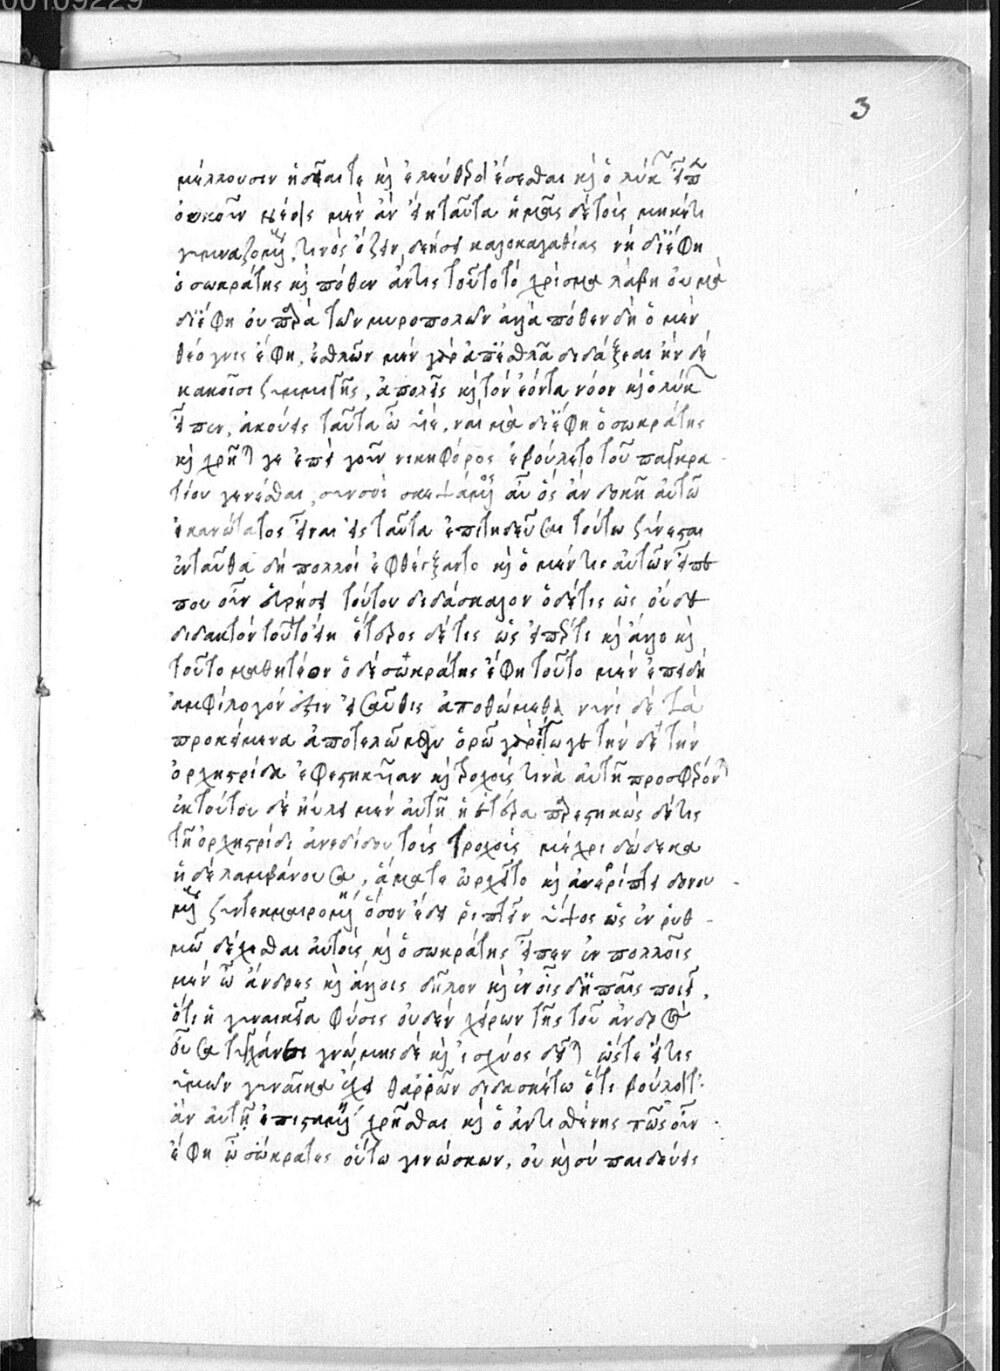 00109229
3
μέλλουσιν ἡδεῖαί τε κ ἐλευθέριοι ἔσεσθαι κ ὁ λύκων εἶπεν
οὐκοῦν νέοις μὲν ἂν εἴη ταῦτα ἡμᾶς δὲ τοὺς μηκέτι
γυμναζομένους, τινὸς ὄζειν δεήσει καλοκαγαθίας νὴ δί' ἔφη
ὁ σωκράτης κ πόθεν ἄν τις τοῦτο τὸ χρίσμα λάβοι οὐ μὰ
δί' ἔφη οὐ παρὰ τῶν μυροπολῶν ἀλλὰ πόθεν δὴ ὁ μὲν
θέογνις ἔφη, ἐσθλῶν μὲν γὰρ ἀπ' ἐσθλὰ διδάξεαι ἢν δὲ
κακοῖσι συμμιγῇς, ἀπολεῖς κ τὸν ἐόντα νόον κ ὁ λύκων
εἶπεν, ἀκούεις ταῦτα ὦ υἱέ, ναὶ μὰ δί' ἔφη ὁ σωκράτης
κ χρῆταί γε ἐπεὶ γοῦν νικηφόρος ἐβούλετο τοῦ παγκρα
τίου γενέσθαι, σὺν σοὶ σκεψάμενος αὖ ὃς ἂν δοκῇ αὐτῷ
ἱκανώτατος εἶναι εἰς ταῦτα ἐπιτηδεῦσαι τούτῳ συνέσται
ἐνταῦθα δὴ πολλοὶ ἐφθέγξαντο κ ὁ μέν τις αὐτῶν εἶπε
ποῦ οὖν εὑρήσει τούτου διδάσκαλον ὁ δέ τις ὡς οὐδὲ
διδακτὸν τοῦτο εἴη ἕτερος δέ τις ὡς εἴπερ τι κ ἄλλο κ
τοῦτο μαθητέον ὁ δὲ σωκράτης ἔφη τοῦτο μὲν ἐπειδὴ
ἀμφίλογόν ἐστιν εἰσαῦθις ἀποθώμεθα νυνὶ δὲ τὰ
προκείμενα ἀποτελῶμεν ὁρῶ γὰρ ἔγωγε τήνδε τὴν
ὀρχηστρίδα ἐφεστηκυῖαν κ τροχούς τινα αὐτῇ προσφέροντα
ἐκ τούτου δὲ ηὔλει μὲν αὐτῇ ἡ ἑτέρα παρεστηκὼς δέ τις
τῇ ὀρχηστρίδι ἀνεδίδου τοὺς τροχοὺς μέχρι δώδεκα
ἡ δὲ λαμβάνουσα, ἅμα τε ὠρχεῖτο κ ἀνερρίπτει δονου
μένους συντεκμαιρομένη ὅσον ἔδει ῥιπτεῖν ὕψος ὡς ἐν ῥυθ
μῷ δέχεσθαι αὐτούς κ ὁ σωκράτης εἶπεν ἐν πολλοῖς
μὲν ὦ ἄνδρες κ ἄλλοις δῆλον κ ἐν οἷς δ' ἡ παῖς ποιεῖ,
ὅτι ἡ γυναικεία φύσις οὐδὲν χείρων τῆς τοῦ ἀνδρὸς
οὖσα τυγχάνει γνώμης δὲ κ ἰσχύος δεῖται ὥστε εἴ τις
ὑμῶν γυναῖκα ἔχει θαρρῶν διδασκέτω ὅτι βούλοιτ'
ἂν αὐτῇ ἐπισταμένῃ χρῆσθαι κ ὁ ἀντισθένης πῶς οὖν
ἔφη ὦ σώκρατες οὕτω γινώσκων, οὐ κ σὺ παιδεύεις